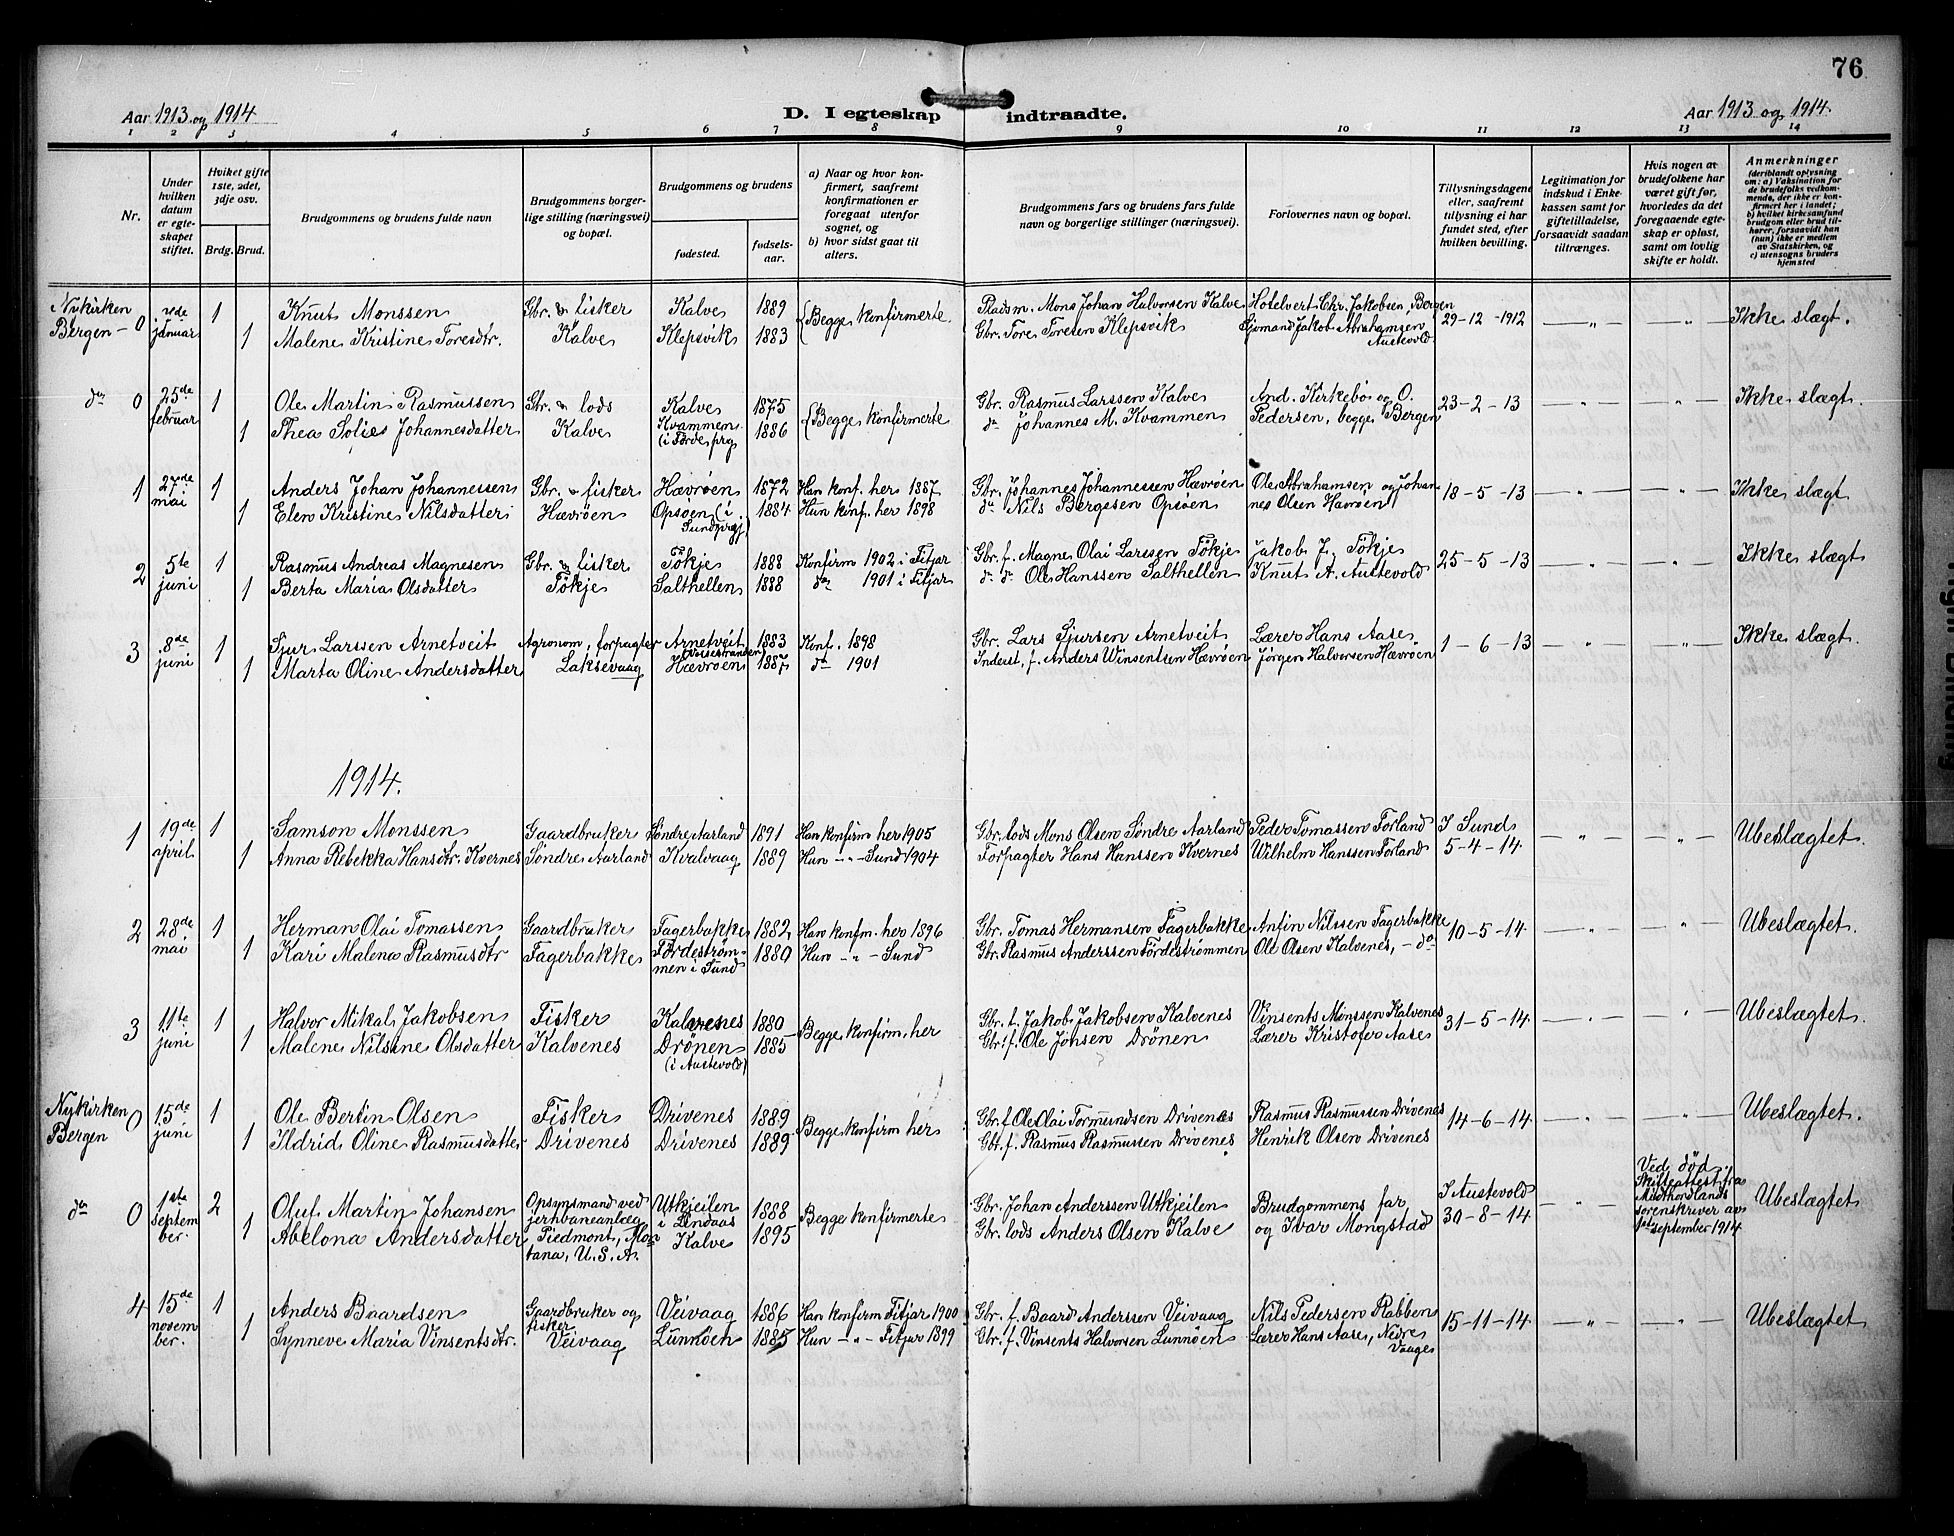 76
Aar 1913 og 1914
D. I egteskap indtraadte.
Aar 1913 og 1914.
1 2 3 4 5 6 7 8 9 10 11 12 13 14
Nr.
Under hvilken datum er egteskapet stiftet.
Hvilket gifte 1ste, 2det, 3dje osv.
Brdg. Brud.
Brudgommens og brudens fulde navn
Brudgommens borgerlige stilling (næringsvei) og bopæl.
Brudgommens og brudens
fødested.
fødselsaar.
a) Naar og hvor konfirmert, saafremt konfirmationen er foregaat utenfor sognet, og
b) hvor sidst gaat til alters.
Brudgommens fars og brudens fars fulde navn og borgerlige stillinger (næringsvei).
Forlovernes navn og bopæl.
Tillysningsdagene eller, saafremt tillysning ei har fundet sted, efter hvilken bevilling.
Legitimation for indskud i Enkekassen samt for giftetilladelse, forsaavidt saadan tiltrænges.
Hvis nogen av brudefolkene har været gift før, hvorledes da det foregaaende egteskap er opløst, samt om lovlig skifte er holdt.
Anmerkninger
(deriblandt oplysning om: a) Vaksination for de brudefolks vedkommende, der ikke er konfirmert her i landet; b) hvilket kirkesamfund brudgom eller brud tilhører, forsaavidt han (hun) ikke er medlem av Statskirken, og c) utensogns bruders hjemsted
Nykirken Bergen – 0 2den januar 1 Knut Monssen Gbr. & fisker Kalve 1889 Begge konfirmerte Pladsm. Mons Johan Halvorsen Kalve Hotelvert Chr. Jakobsen, Bergen 29-12-1912 — " — — " — Ikke slægt.
1 Malene Kristine Toresdtr. Kalve Klepsvik 1883 Gbr. Tore Toresen Klepsvik Sjømand Jakob Abrahamsen Austevold
do 0 25de februar 1 Ole Martin Rasmussen Gbr. & lods Kalve 1875 Begge konfirmerte Gbr. Rasmus Larssen Kalve And. Kirkebø og O. 23-2-13 — " — — " — Ikke slægt.
1 Thea Solie Johannesdatter Kalve Kvammen (i Førde prg 1886 do Johannes M. Kvammen Pedersen, begge Bergen
1 27de mai 1 Anders Johan Johannessen Gbr. & fisker Hævrøen 1872 Han konf. her 1887 Gbr. Johannes Johannessen Hævrøen Ole Abrahamsen og Johan- 18-5-13 — " — — " — Ikke slægt
1 Elen Kristine Nilsdatter Hævrøen Opsøen (i Sund prgj) 1884 Hun konf. her 1898 do Nils Bergesen Opsøen nes Olsen Hævrøen
2 5te juni 1 Rasmus Andreas Magnesen Gbr. & fisker Tøkje 1888 Konfirm 1902 i Fitjar Gbr. f. Magne Olai Larssen Tøkje Jakob J. Tøkje 25-5-13 — " — — " — Ikke slægt
1 Berta Maria Olsdatter Tøkje Salthellen 1888 do 1901 i Fitjar do do Ole Hanssen Salthellen Knut A. Austevold
3 8de juni 1 Sjur Larssen Arnetveit Agronom, forpagter Arnetveit 1883 Konf. 1898 Gbr. Lars Sjursen Arnetveit Lærer Hans Aase 1-6-13 — " — — " — Ikke slægt.
1 Marta Oline Andersdatter Laksevaag Hævrøen 1887 do 1901 Inderst, f. Anders Winsentsen Hævrøen Jørgen Halvorsen Hævrøen
1914.
1 19de april 1 Samson Monssen Gaardbruker Søndre Aarland 1891 Han konfirm her 1905 Gbr. lods Mons Olsen Søndre Aarland Peder Tomassen Forland I Sund — " — — " — Ubeslægtet.
1 Anna Rebekka Hansdtr. Kvernes Søndre Aarland Kvalvaag 1889 Hun — " — Sund 1904 Forpagter Hans Hanssen Kvernes Wilhelm Hanssen Forland 5-4-14
2 28de mai 1 Herman Olai Tomassen Gaardbruker Fagerbakke 1882 Han konfm. her 1896 Gbr. Tomas Hermansen Fagerbakke Anfin Nilssen Fagerbakke 10-5-14 — " — — " — Ubeslægtet.
1 Kari Malena Rasmusdtr Fagerbakke Førdestrømmen i Sund 1880 Hun — " — Sund Gbr. Rasmus Anderssen Førdestrømmen Ole Olsen Kalvenes, – do
3 11te juni 1 Halvor Mikal Jakobsen Fisker Kalvenes 1880 Begge konfirm. her Gbr. f. Jakob Jakobsen Kalvenes Vinsents Monssen Kalvenes 31-5-14 — " — — " — Ubeslægtet.
1 Malene Nilsine Olsdatter Kalvenes Drønen (i Austevold) 1885 Gbr. f. Ole Johsen Drønen Lærer Kristofer Aase
Nykirken Bergen 0 15de juni 1 Ole Bertin Olsen Fisker Drivenes 1889 Begge konfirm her Gbr. f. Ole Olai Tormundsen Drivenes Rasmus Rasmussen Drivenes 14-6-14 — " — — " — Ubeslægtet.
1 Ildrid Oline Rasmusdatter Drivenes Drivenes 1889 Gbr. f. Rasmus Rasmussen Drivenes Henrik Olsen Drivenes
do 0 1ste september. 2 Oluf Martin Johansen Opsynsmand ved jernbaneanlæg Piedmont, Montana, U.S.A. Utkjeilen i Lindaas 1888 Begge konfirmerte Gbr. Johan Anderssen Utkjeilen Brudgommens far I Austevold — " — Ved død. Skifteattest fra Midthordlands sorenskriver av 1ste september 1914 Ubeslægtet
1 Abelona Andersdatter Kalve 1895 Gbr. lods Anders Olsen Kalve og Ivar Mongstad 30-8-14
4 15de november. 1 Anders Baardsen Gaardbruker og fisker Veivaag 1886 Han konfirm Fitjar 1900 Gbr. f. Baard Anderssen Veivaag Nils Pedersen Rabben 15-11-14 — " — — " — Ubeslægtet
1 Synneve Maria Vinsentsdtr. Veivaag Lunnøen 1885 Hun — " — Fitjar 1899 Gbr. f. Vinsents Halvorsen Lunnøen Lærer Hans Aase, Nedre Vaage